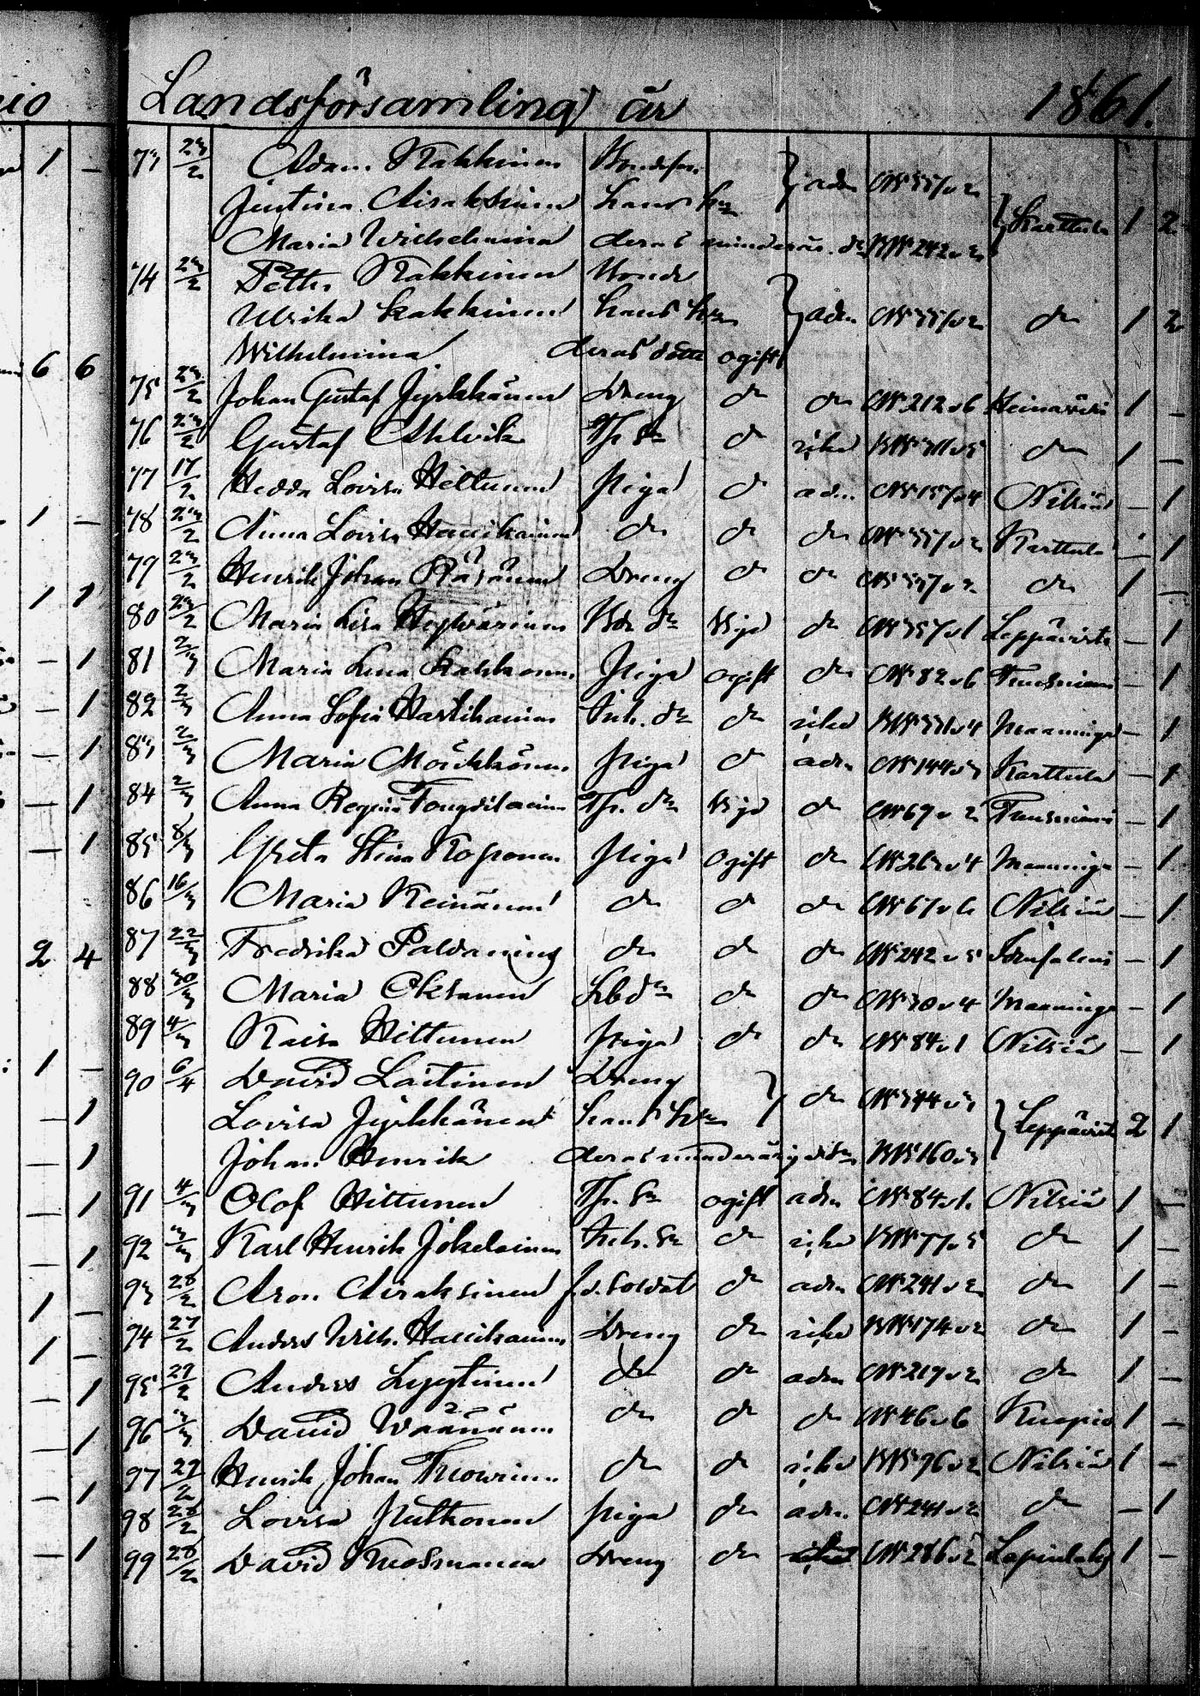 Landsförsamling år 1861.
1 – 73 23/2 Adam Kakkinen Bondeson
Justina Airaksinen hans h:u } adm N:o 357 v 2 } Karttula 1 2
Maria Wilhelmina deras minderår. N:o 242 v 2
74 23/2 Petter Kakkinen Bonde
Ulrika Kakkinen hans h:u } adm N:o 357 v 2 do 1 2
Wilhelmina deras dotter ogift
6 6
75 23/2 Johan Gustaf Jyrkkänen Dreng do do N:o 212 v 6 Heinävesi 1 –
76 23/2 Gustaf do icke do 1 –
77 17/2 Hedda Lovisa Hiltunen Piga do adm N:o 157 v 4 Nilsiä – 1
1 – 78 23/2 Anna Lovisa Haukanen do do do N:o 357 v 2 Karttula – 1
79 23/2 Henrik Johan Räsänen Dreng do do N:o 357 v 2 do 1 –
1 1 80 23/2 Maria Lisa Bde dr Vigd do N:o 357 v 1 Leppävirta – 1
– 1 81 2/3 Maria Lena Kakkonen Piga ogift do N:o 82 v 6 – 1
– 1 82 2/3 Anna Sofia Hartikainen Inh. dr do icke N:o 331 v 4 Maaninga – 1
– 1 83 2/3 Maria Mörkkönen Piga do adm N:o 144 v 3 Karttula – 1
– 1 84 2/3 Anna Regina Tp. dr Vigd do N:o 67 v 2 – 1
– 1 85 8/3 Greta Stina Kosonen Piga ogift do N:o 263 v 4 Maaninga – 1
86 16/3 Maria Keinänen do do do N:o 67 v 6 Nilsiä – 1
2 4 87 22/3 Fredrika Paldanius do do do N:o 242 v 5 – 1
88 30/3 Maria Oksanen do do N:o 30 v 4 Maaninga – 1
89 4/3 Kaisa Hiltunen Piga do do N:o 84 v 1 Nilsiä – 1
1 – 90 6/4 David Laitinen Dreng
– 1 Lovisa Jyrkkänen hans h:u } do N:o 344 v 3 } Leppävirta 2 1
– 1 Johan Henrik deras minderårig N:o 160 v 3
– 1 91 4/3 Olof Hiltunen Tp. Sn ogift adm N:o 84 v 1 Nilsiä 1 –
– 1 92 3/3 Karl Henrik Jokelainen Inh. Sn do icke N:o 77 v 5 do 1 –
1 – 93 28/2 Aron Airaksinen f.d. Soldat do adm N:o 241 v 2 do 1 –
1 – 94 27/2 Anders Wilh. Haukanen Dreng do icke N:o 174 v 2 do 1 –
– 1 95 27/2 Anders Lyytinen do do adm N:o 219 v 2 do 1 –
– 1 96 3/3 David Väänänen do do do N:o 46 v 6 Kuopio 1 –
– 1 97 27/2 Henrik Johan do do icke N:o 96 v 2 Nilsiä 1 –
98 28/2 Lovisa Piga do adm N:o 241 v 2 do – 1
– 1 99 28/2 David Kuosmanen Dreng do N:o 286 v 2 Lapinlaks 1 –